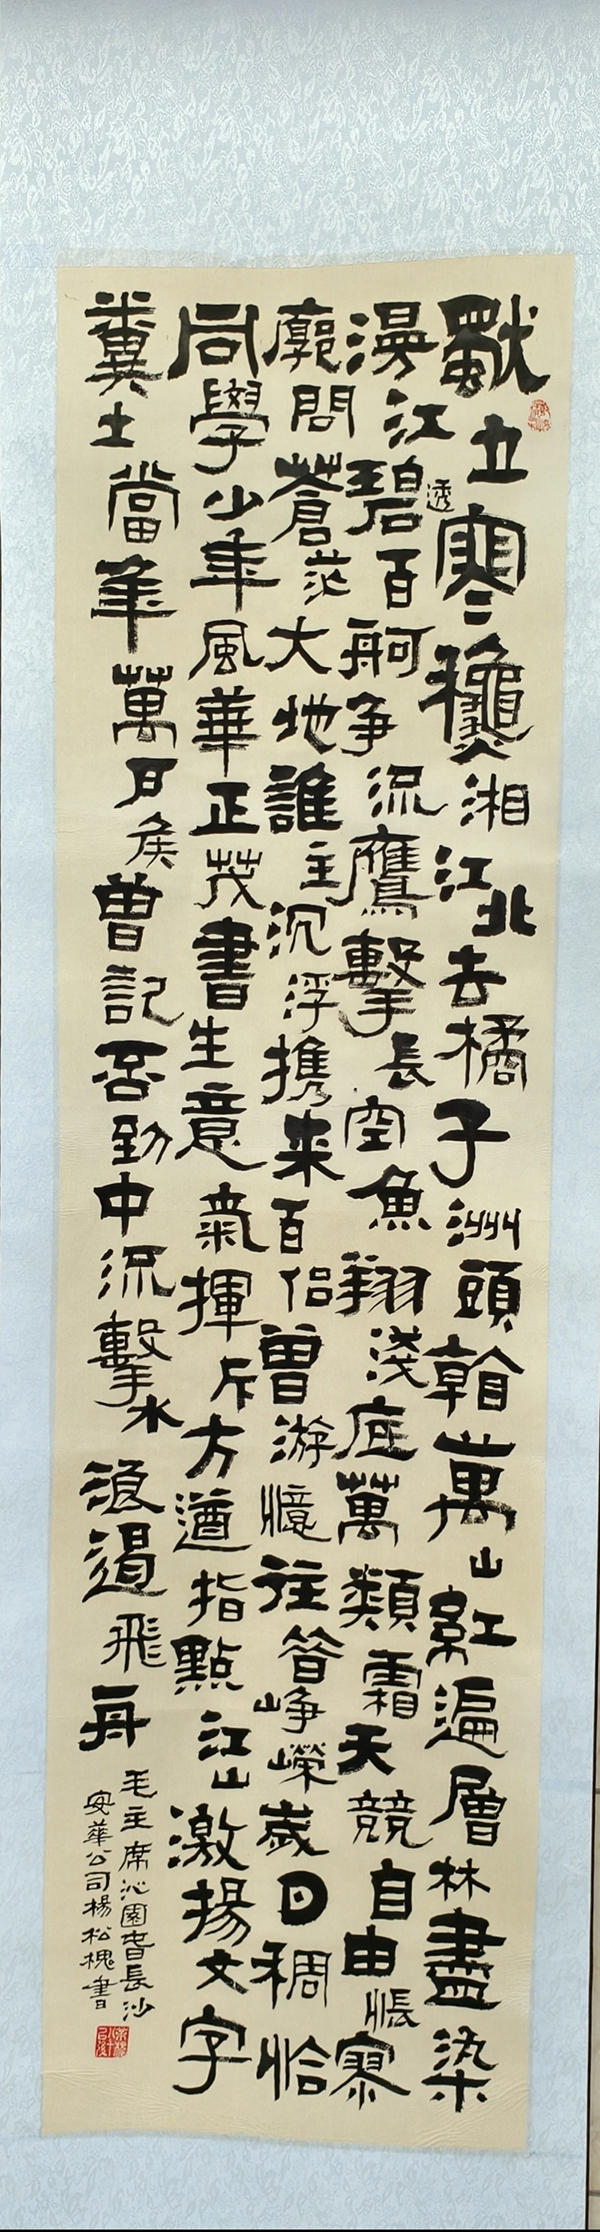 獨立寒龝湘江北去橘子洲頭看萬山紅遍層林盡染
漫江碧透百舸争流鷹擊長空魚翔淺底萬類霜天競自由悵寥
廓問蒼茫大地誰主沉浮携来百侣曾游憶往昔峥嶸歲月稠恰
同學少年風華正茂書生意氣揮斥方遒指點江山激揚文字
糞土當年萬户侯曾記否到中流擊水浪遏飛舟
毛主席沁園春長沙
安華公司楊松槐書